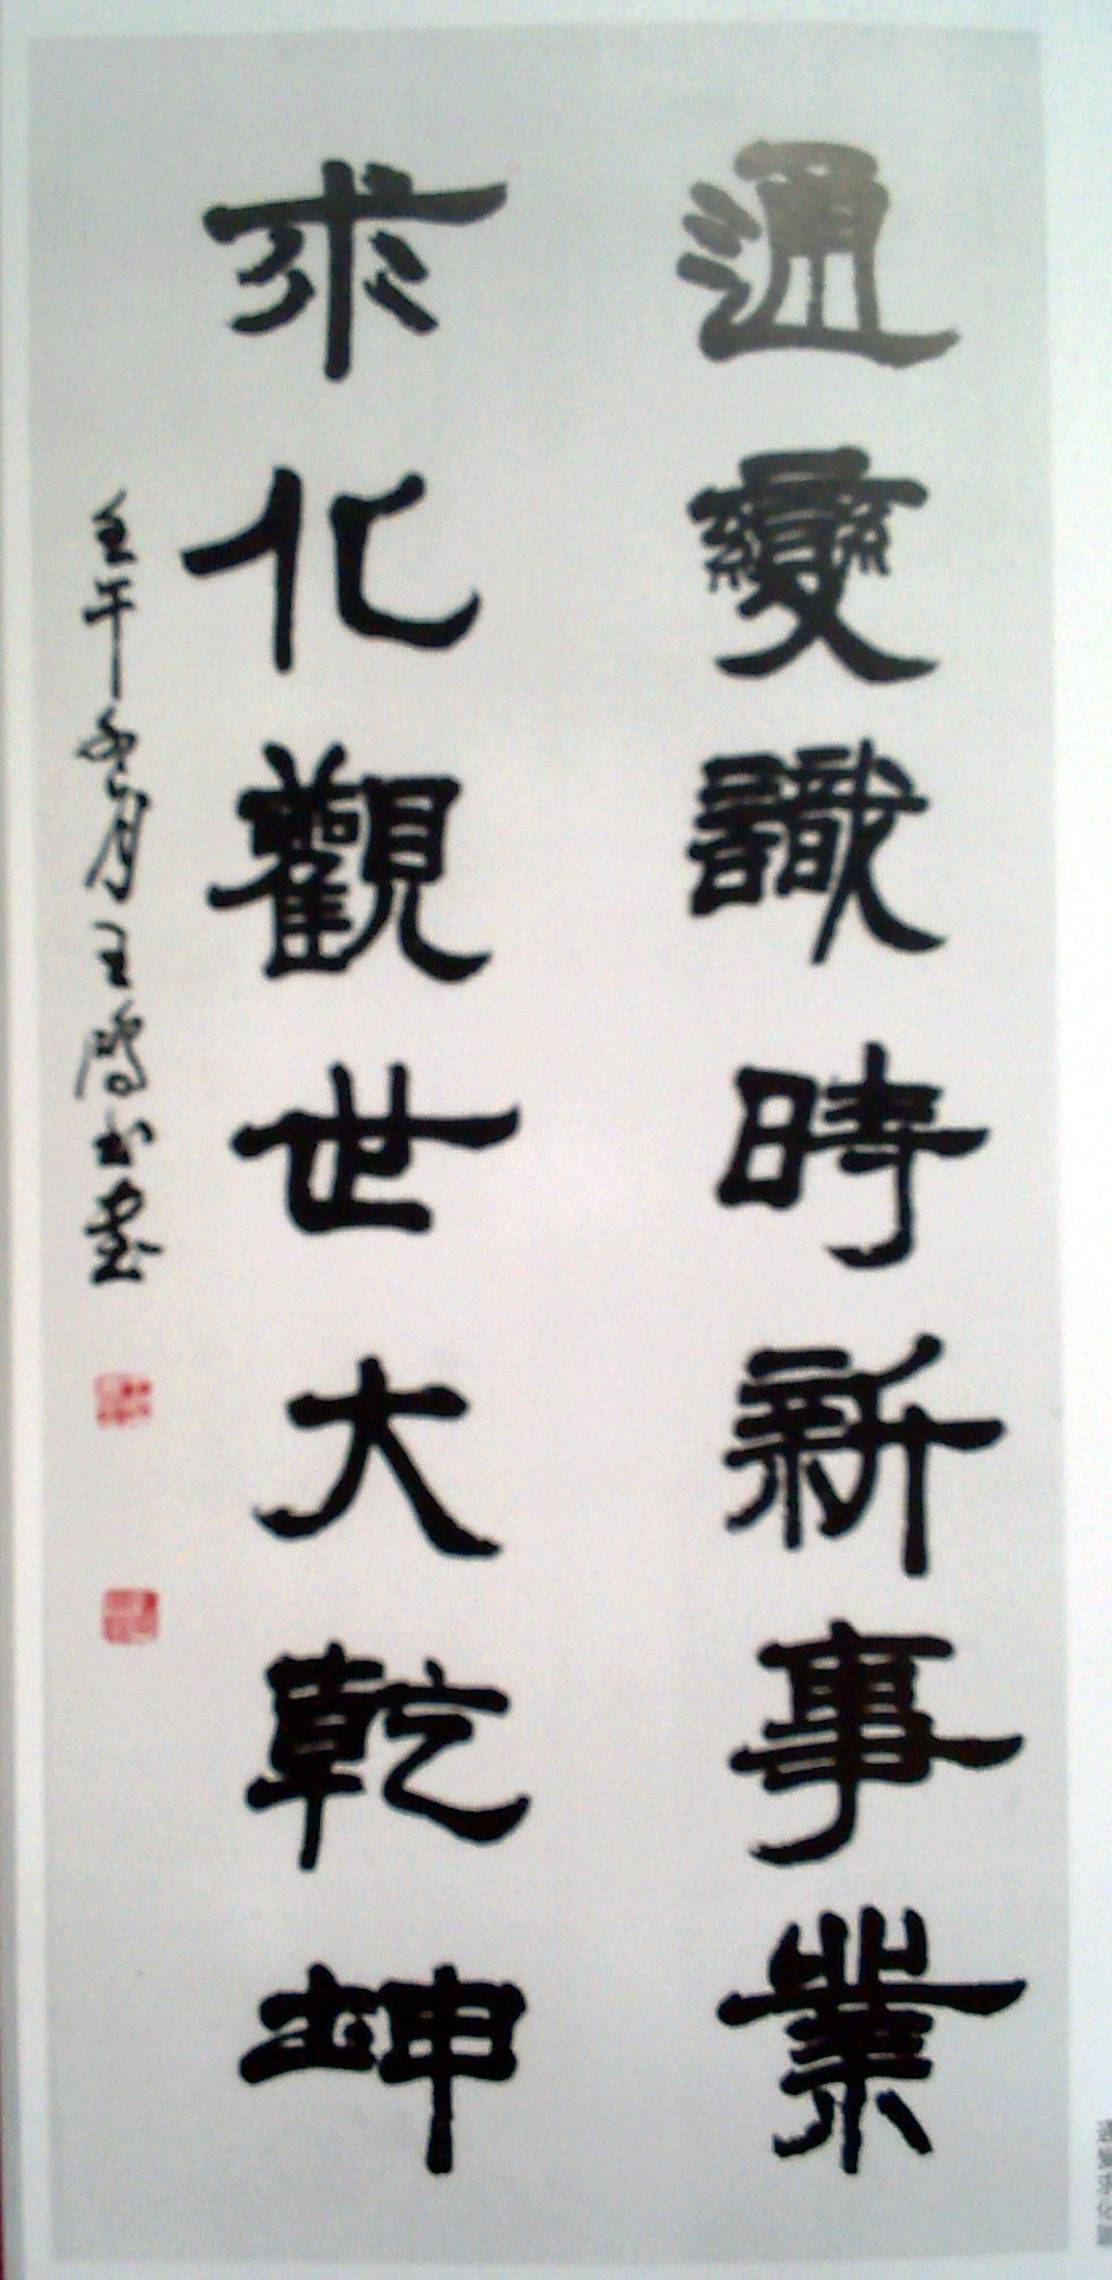 通變識時新事業
求化觀世大乾坤
壬午年 月王 書